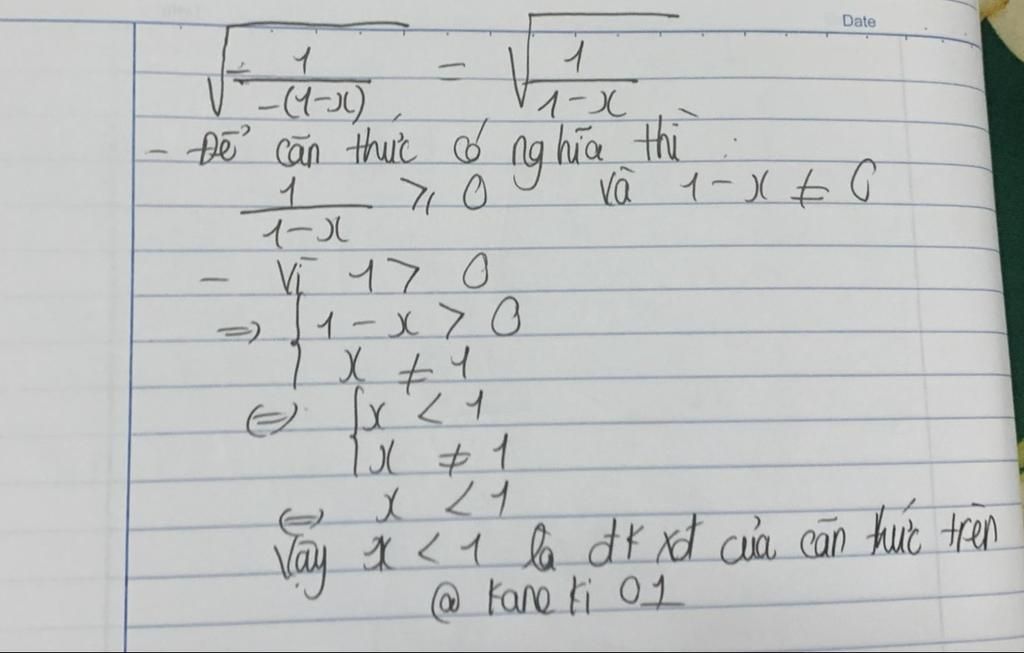 Date
√(-1/(-(1-x))) = √(1/(1-x))
- Để căn thức có nghĩa thì :
1/(1-x) ⩾ 0 và 1-x ≠ 0
- Vì 1 > 0
=> { 1 - x > 0
x ≠ 1
<=> { x < 1
x ≠ 1
<=> x < 1
Vậy x < 1 là đk xđ của căn thức trên
@ Kane ki 01